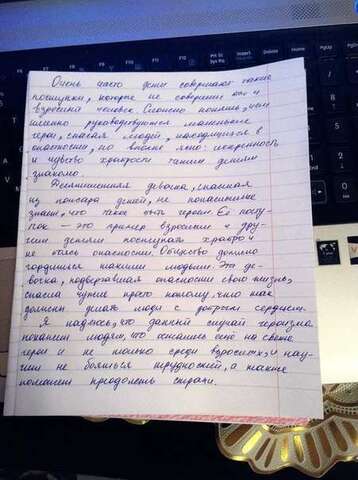 Очень часто дети совершают такие
поступки, которые не совершит и
взрослый человек. Сложно понять, чем
именно руководствуются маленькие
герои, спасая людей, находящихся в
опасности, но вполне ясно: искренность
и чувство храбрости таким детям
знакомо.
Восьмилетняя девочка, спасшая
из пожара детей, не понаслышке
знает, что такое быть героем. Её посту-
пок — это пример взрослым и дру-
гим детям поступать храбро и
не боясь опасности. Общество должно
гордиться такими людьми. Эта де-
вочка, подвергавшая опасности свою жизнь,
спасла чужие просто потому, что так
должны делать люди с добрым сердцем.
Я надеюсь, что данный случай героизма
покажет людям, что остались ещё на свете
герои и не только среди взрослых, и нау-
чит не бояться трудностей, а также
поможет преодолеть страхи.